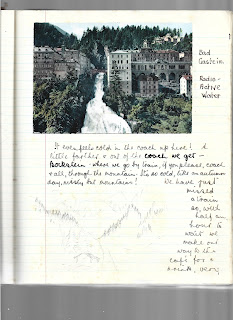 Bad
Gastein.
Radio-
Active
Water
It even feels cold in the coach up here! A
little farther & out of the coach we get -
Bockstein - where we go by train, if you please, coach
& all, through the mountain. It's so cold, like an autumn
day, nearly but mountains!
We have just
missed
a train
so, with
half an
hour to
wait we
make our
way to the
café for a
drink, very